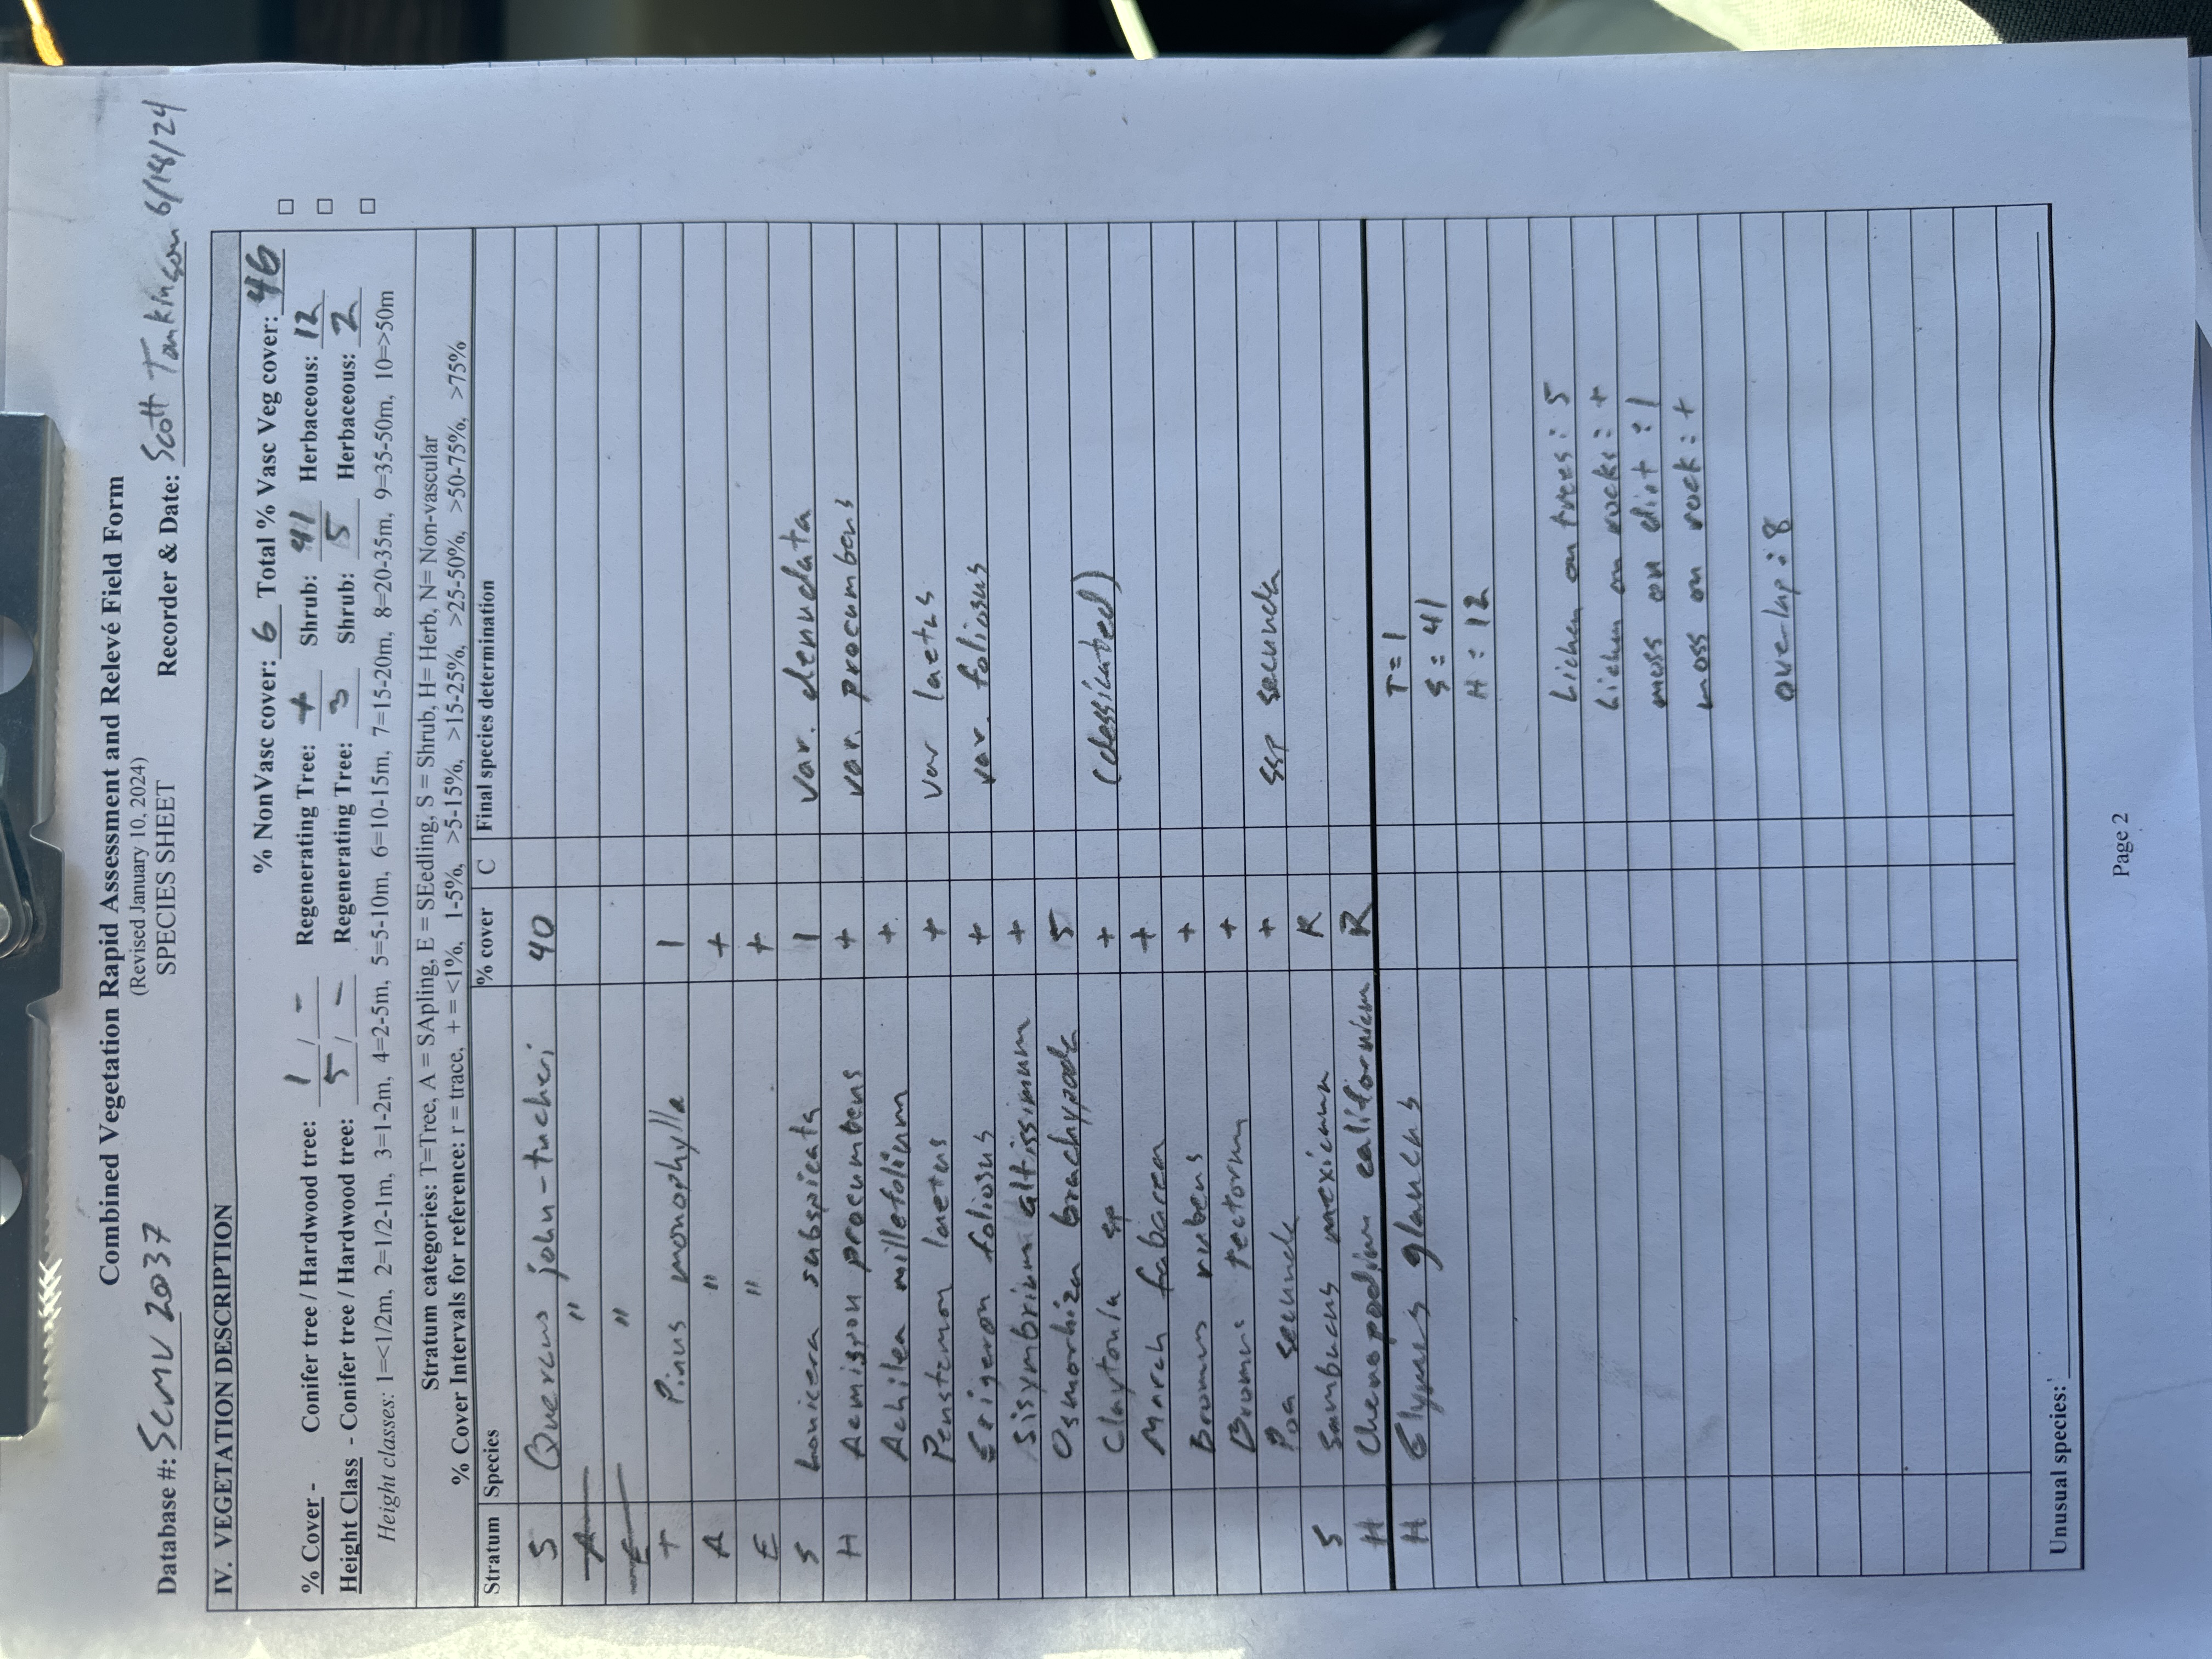 Combined Vegetation Rapid Assessment and Relevé Field Form
(Revised January 10, 2024)
Database #: SCMV 2037 SPECIES SHEET Recorder & Date: Scott Tomkinson 6/18/24
IV. VEGETATION DESCRIPTION
% NonVasc cover: 6 Total % Vasc Veg cover: 46
% Cover - Conifer tree / Hardwood tree: 1 / - Regenerating Tree: + Shrub: 41 Herbaceous: 12
Height Class - Conifer tree / Hardwood tree: 5 / - Regenerating Tree: 3 Shrub: 5 Herbaceous: 2
Height classes: 1=<1/2m, 2=1/2-1m, 3=1-2m, 4=2-5m, 5=5-10m, 6=10-15m, 7=15-20m, 8=20-35m, 9=35-50m, 10=>50m
Stratum categories: T=Tree, A = SApling, E = SEedling, S = Shrub, H= Herb, N= Non-vascular
% Cover Intervals for reference: r = trace, + = <1%, 1-5%, >5-15%, >15-25%, >25-50%, >50-75%, >75%
Stratum Species % cover C Final species determination
S Quercus john-tucheri 40
A "
E "
T Pinus monophylla 1
A " +
E " +
S Lonicera subspicata 1 var. denudata
H Acmispon procumbens + var. procumbens
Achilea millefolium +
Penstemon laetus + var laetus
Erigeron foliosus + var. foliosus
Sisymbrium altissimum +
Osmorhiza brachypoda 5
Claytonia sp + (dessicated)
Marah fabacea +
Bromus rubens +
Bromus tectorum +
Poa secunda + ssp secunda
S Sambucus mexicana R
H Chenopodium californicum R
H Elymus glaucus T=1
S = 41
H = 12
Lichen on trees: 5
Lichen on rocks: +
moss on dirt: 1
moss on rock: +
overlap: 8
Unusual species:
Page 2